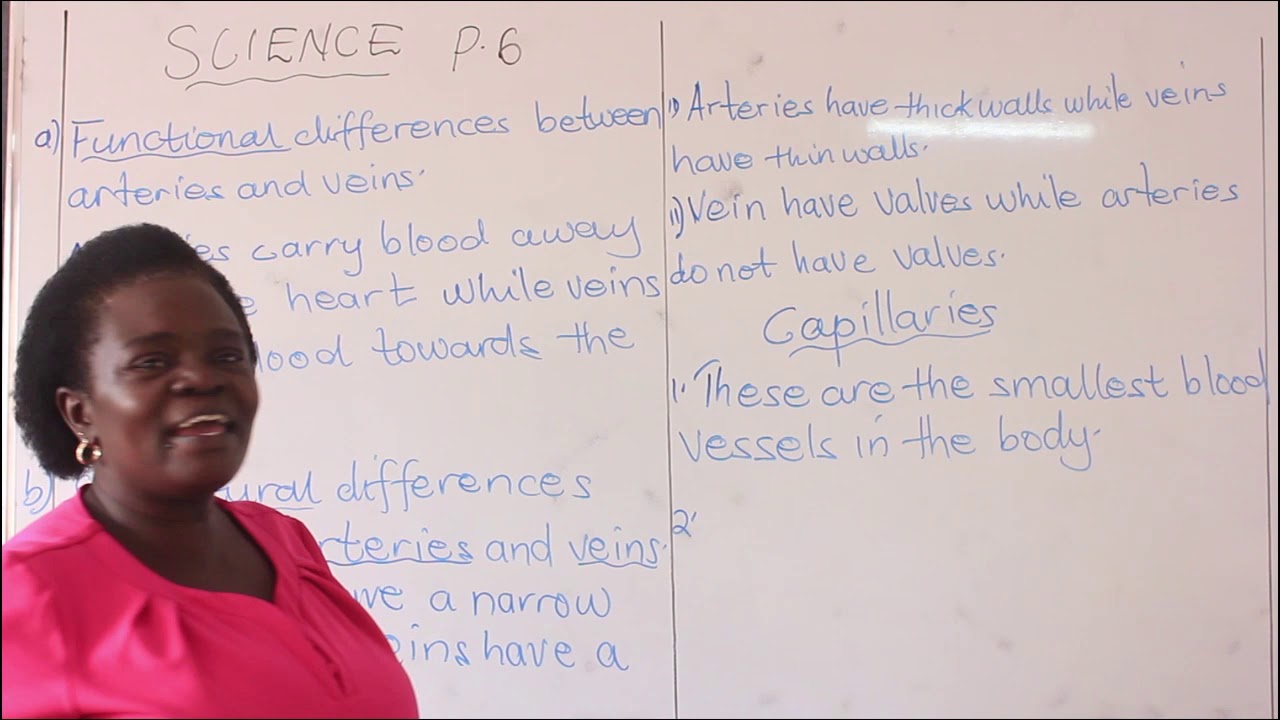 SCIENCE P.6
a) Functional differences between
arteries and veins.
carry blood away
heart while veins
towards the
b) differences
and veins.
a narrow
have a
i) Arteries have thick walls while veins
have thin walls.
ii) Vein have valves while arteries
do not have valves.
Capillaries
1. These are the smallest blood
vessels in the body.
2.